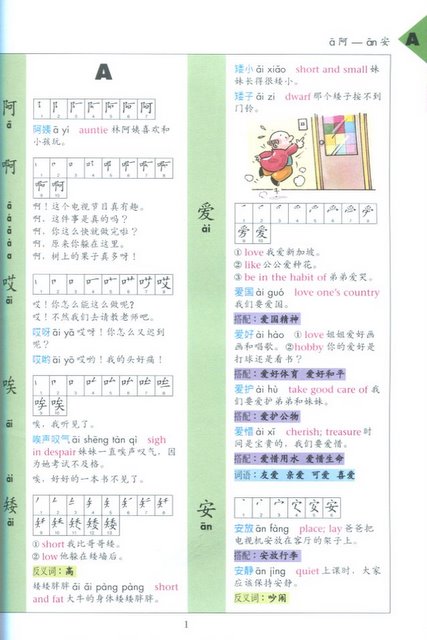 ā 阿 — ān 安
A
A
阿
ā
阿姨 ā yí auntie 林阿姨喜欢和
小孩玩。
啊
ā
á
ǎ
à
a
啊！这个电视节目真有趣。
啊，这件事是真的吗？
啊，你这么快就做完啦？
啊，原来你躲在这里。
啊，树上的果子真多呀！
哎
āi
哎！你怎么能这么做呢？
哎！不然我们去请教老师吧。
哎呀 āi yā 哎呀！你怎么又迟到
呢？
哎哟 āi yō 哎哟！我的头好痛！
唉
āi
唉，我听见了。
唉声叹气 āi shēng tàn qì sigh
in despair 妹妹一直唉声叹气，因
为她考试不及格。
ài
唉，好好的一本书不见了。
矮
ǎi
① short 我比哥哥矮。
② low 他躲在矮墙后。
反义词：高
矮矮胖胖 ǎi ǎi pàng pàng short
and fat 大牛的身体矮矮胖胖。
矮小 ǎi xiǎo short and small 妹
妹长得很矮小。
矮子 ǎi zi dwarf 那个矮子按不到
门铃。
爱
ài
① love 我爱新加坡。
② like 公公爱种花。
③ be in the habit of 弟弟爱哭。
爱国 ài guó love one's country
我们要爱国。
搭配：爱国精神
爱好 ài hào ① love 姐姐爱好画
画和唱歌。② hobby 你的爱好是
打球还是看书？
搭配：爱好体育 爱好和平
爱护 ài hù take good care of 我
们要爱护弟弟和妹妹。
搭配：爱护公物
爱惜 ài xī cherish; treasure 时
间是宝贵的，我们要爱惜。
搭配：爱惜用水 爱惜生命
词语：友爱 亲爱 可爱 喜爱
安
ān
安放 ān fàng place; lay 爸爸把
电视机安放在客厅的架子上。
搭配：安放行李
安静 ān jìng quiet 上课时，大家
应该保持安静。
反义词：吵闹
1